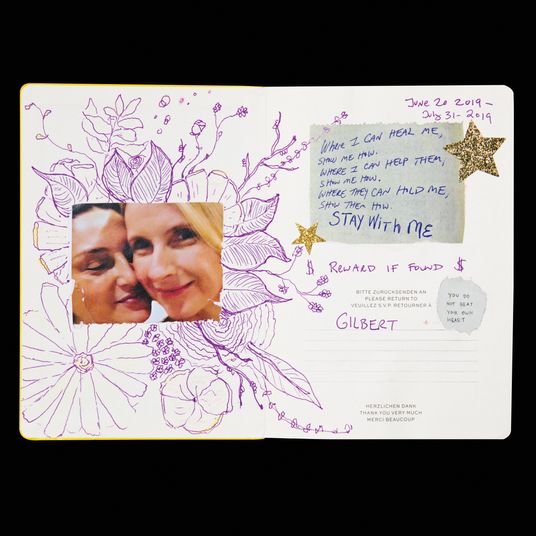 June 20 2019 –
July 31 - 2019
WHERE I CAN HEAL ME,
SHOW ME HOW.
WHERE I CAN HELP THEM,
SHOW ME HOW.
WHERE THEY CAN HOLD ME,
SHOW THEM HOW.
STAY WITH ME
$ REWARD IF FOUND $
BITTE ZURÜCKSENDEN AN
PLEASE RETURN TO
VEUILLEZ S.V.P. RETOURNER À
GILBERT
YOU DO
NOT BEAT
YOUR OWN
HEART
HERZLICHEN DANK
THANK YOU VERY MUCH
MERCI BEAUCOUP